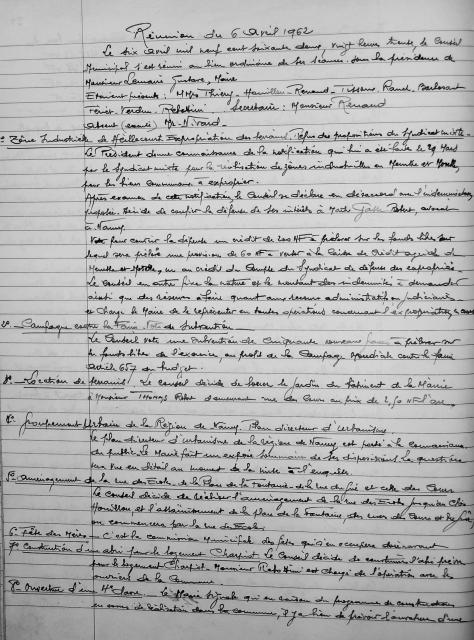 Réunion du 6 avril 1962
Le six avril mil neuf cent soixante deux, vingt heures trente, le Conseil
Municipal s'est réuni au lieu ordinaire de ses séances sous la présidence de
Monsieur Lemaire Gustave, Maire
Etaient présents : MM. Thiéry - Hamillon - Renaud - Ramel, Barbesant
Février - Verdun - Secrétaire : Monsieur Renaud
absent (excusé) Mr. Nivard
Zône Industrielle de Heillecourt Expropriation des terrains. Refus des propositions du Syndicat mixte -
Le Président donne connaissance de la notification qui lui a été faite le 29 Mars
par le Syndicat mixte pour la réalisation de zônes industrielles en Meurthe et Moselle,
pour les biens communaux à exproprier.
Après examen de cette notification, le Conseil se déclare en désaccord avec l'indemnisation
proposée. Décide de confier la défense de ses intérêts à Maître avocat
à Nancy.
Vote pour couvrir la défense un crédit de 200 NF à prélever sur les fonds libres sur
lequel sera prélevé une provision de 60 NF à verser à la Caisse de Crédit agricole de
Meurthe et Moselle, en un crédit du Compte du Syndicat de défense des expropriés.
Le Conseil en outre fixe la nature et le montant des indemnités à demander
ainsi que des réserves à faire quant aux recours administratifs, judiciaires
et charge Monsieur le Maire de le représenter en toutes opérations concernant l'expropriation en cours
2° - Campagne contre la Faim. Vote de subvention -
Le Conseil vote une subvention de Cinquante nouveaux francs à prélever sur
les fonds libres de l'exercice, au profit de la Campagne Mondiale contre la faim
article 657 du budget.
3° - Location de terrains. Le Conseil décide de louer le jardin du bâtiment de la Mairie
à Monsieur THOMAS Robert demeurant rue des Cours au prix de 2,50 NF l'are.
4° - Groupement Urbain de la Région de Nancy. Plan directeur d'Urbanisme.
Le plan directeur d'urbanisme de la région de Nancy est porté à la connaissance
du public. Le Maire fait un exposé sommaire de ses dispositions. La question
sera vue en détail au moment de la mise à l'enquête.
5° - aménagement de la rue des Ecoles, de la Place de la Fontaine, de la rue du et celle des Cours
Le Conseil décide de réaliser l'aménagement de la rue des Ecoles jusqu'au Clos
Hamillon et l'assainissement de la place de la Fontaine, des rues des Cours et
en commençant par la rue des Ecoles.
6° - Fête des Mères - C'est la commission Municipale des fêtes qui s'en occupera dorénavant
7° - Construction d'un abri pour le logement Charpiot. Le Conseil décide de construire l'abri prévu
pour le logement Charpiot. Monsieur est chargé de l'opération avec les
ouvriers de la Commune.
8° - Ouverture d'une 4e Classe. Le Maire signale qu'en raison du programme de construction
en cours de réalisation dans la commune, il y a lieu de prévoir l'ouverture d'une